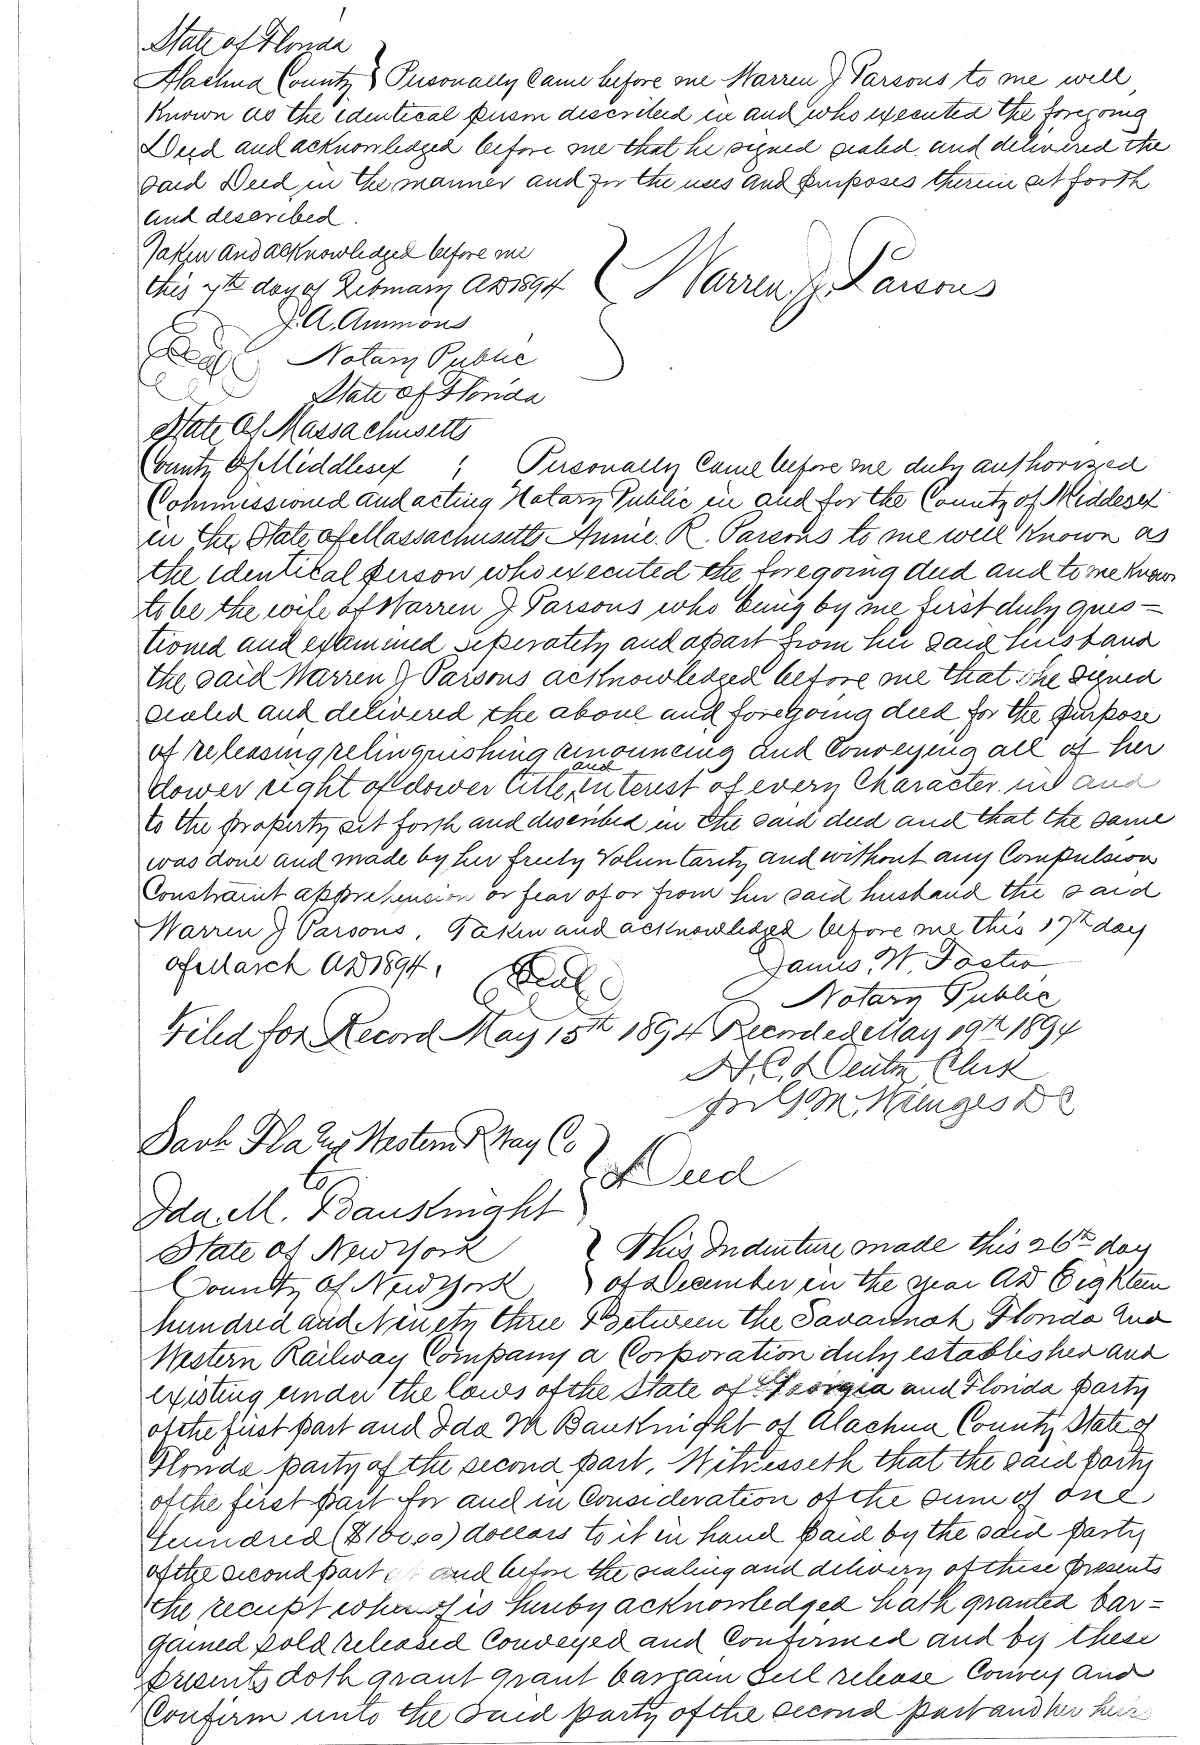 State of Florida
Alachua County } Personally Came before me Warren J Parsons to me well
Known as the identical person described in and who executed the foregoing
Deed and acknowledged before me that he signed sealed and delivered the
said Deed in the manner and for the uses and purposes therein set forth
and described.
Taken and acknowledged before me
this 7th day of February AD 1894 } Warren J. Parsons
J. A. Ammons
Seal Notary Public
State of Florida
State Of Massachusetts
County Of Middlesex ; Personally Came before me duly authorized
Commissioned and acting Notary Public in and for the County of Middlesex
in the State of Massachusetts Annie. R. Parsons to me well Known as
the identical person who executed the foregoing deed and to me Known
to be the wife of Warren J Parsons who being by me first duly ques=
tioned and examined seperately and apart from her said husband
the said Warren J Parsons acknowledged before me that she signed
sealed and delivered the above and foregoing deed for the purpose
of releasing relinquishing renouncing and Conveying all of her
dower right of dower title and interest of every Character in and
to the property set forth and described in the said deed and that the same
was done and made by her freely Voluntarity and without any Compulsion
Constraint apprehension or fear of or from her said husband the said
Warren J Parsons. Taken and acknowledged before me this 17th day
of March AD 1894. Seal James. W. Foster
Notary Public
Filed for Record May 15th 1894 Recorded May 19th 1894
H. C. Denton Clerk
pr G M. DC
Savh Fla & Western R Way Co
to } Deed
Ida. M. BausKnight
State of New York } This Indenture made this 26th day
County of New York } of December in the year AD Eighteen
hundred and Ninety three Between the Savannah Florida and
Western Railway Company a Corporation duly established and
existing under the laws of the State of Georgia and Florida party
of the first part and Ida M BausKnight of Alachua County State of
Florida party of the second part. Witnesseth that the said party
of the first part for and in Consideration of the sum of one
hundred ($100.00) dollars to it in hand paid by the said party
of the second part at and before the sealing and delivery of these presents
the receipt whereof is hereby acknowledged hath granted bar=
gained sold released Conveyed and Confirmed and by these
presents doth grant grant bargain Sell release Convey and
Confirm unto the said party of the second part and her heirs